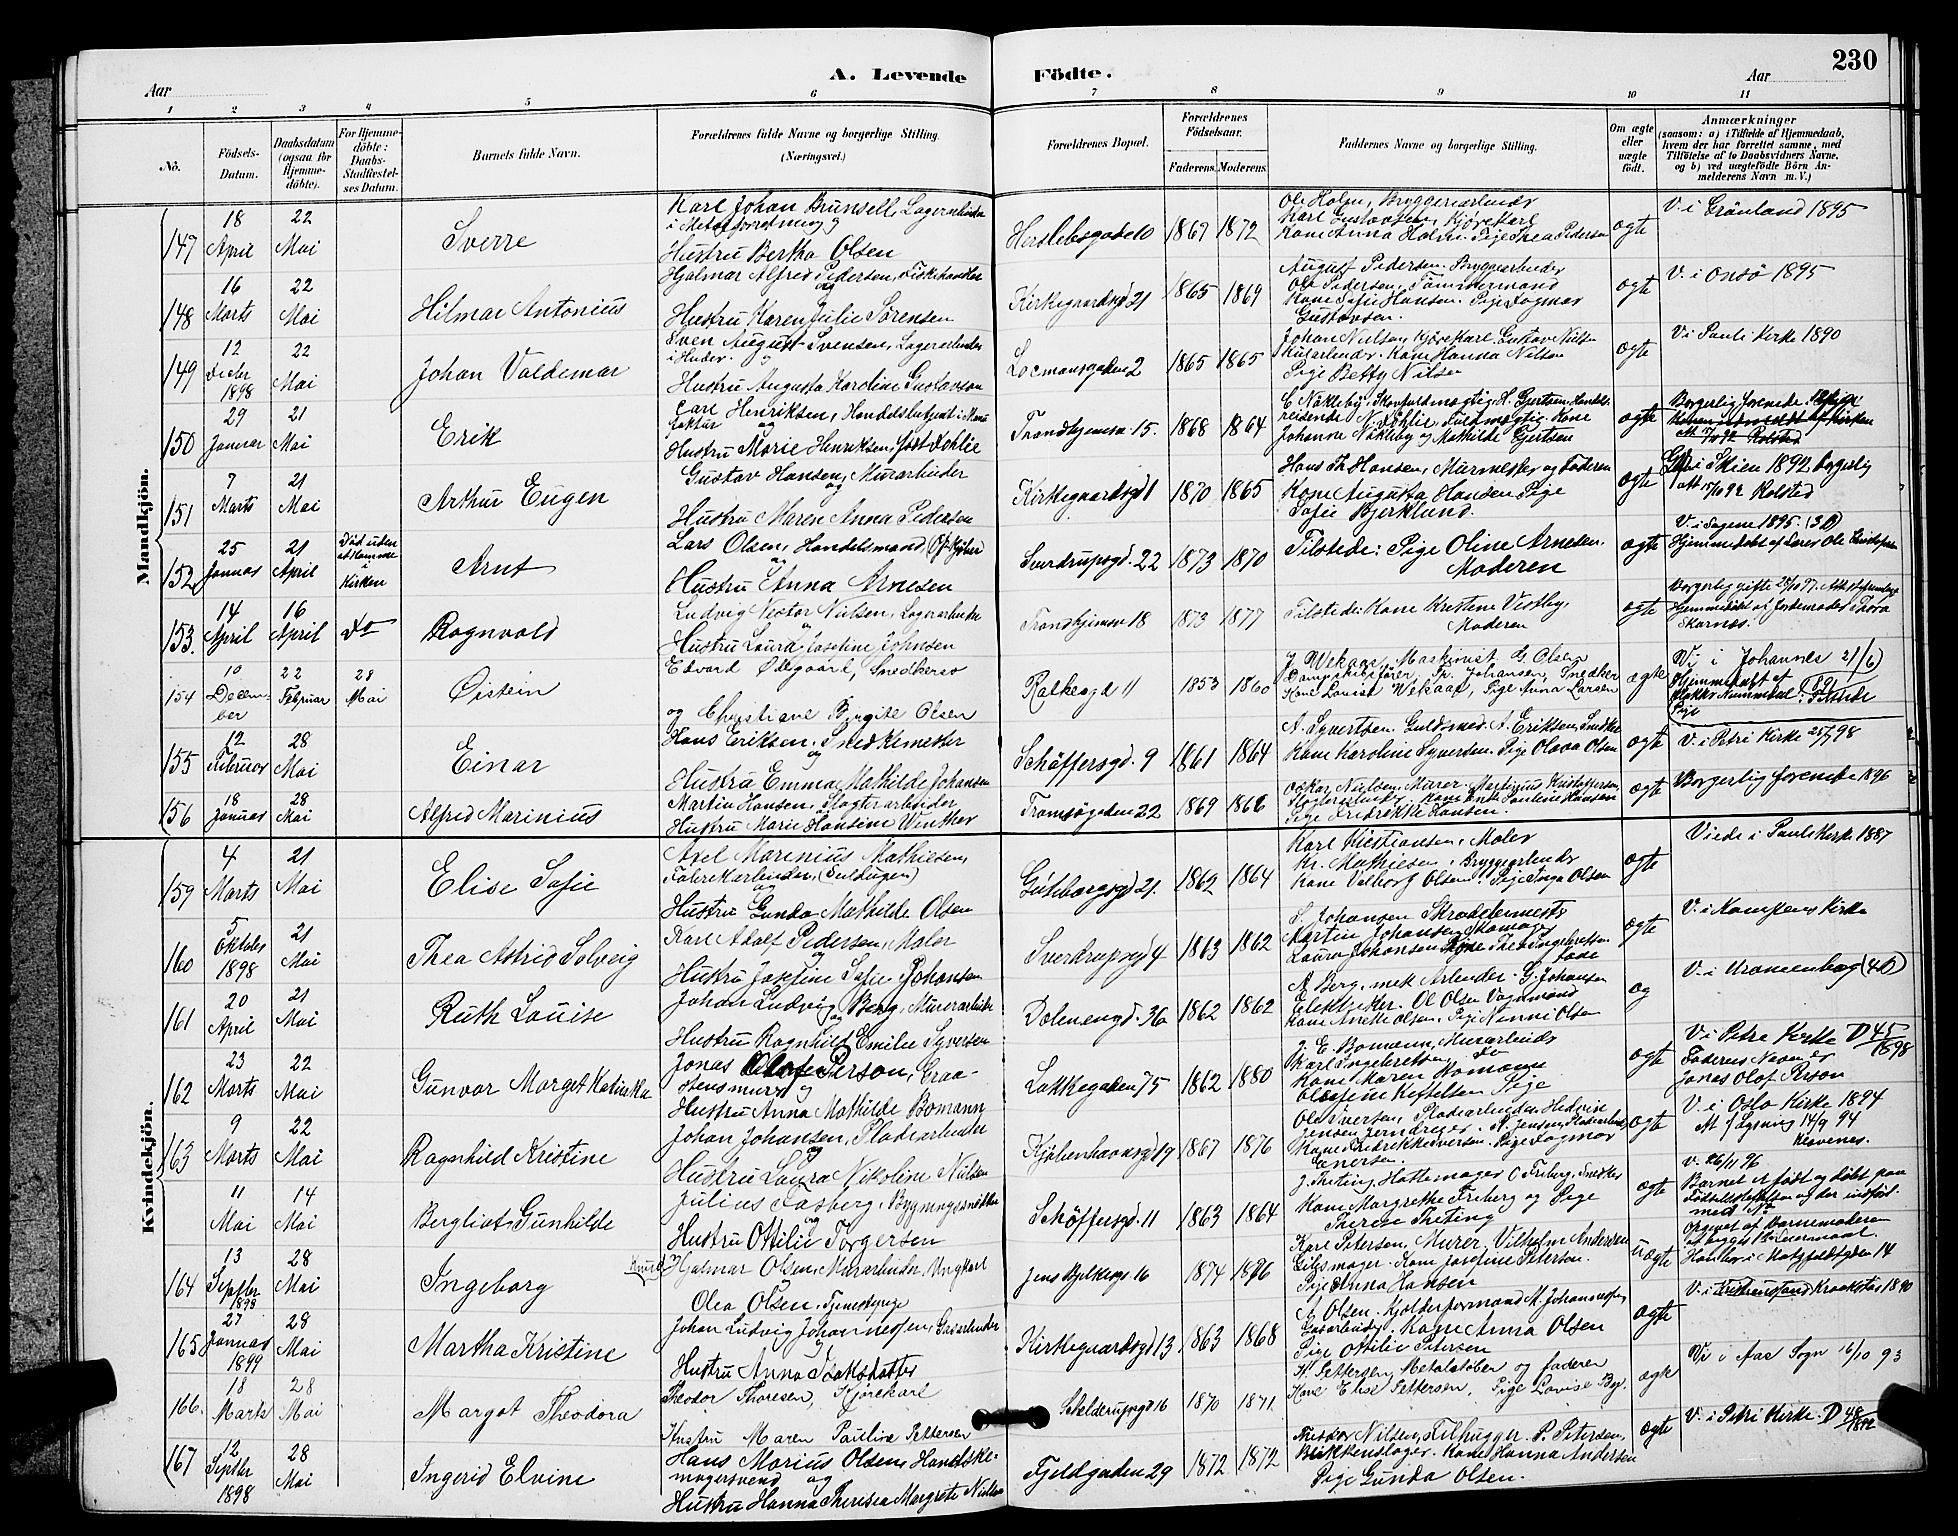 A. Levende Födte.
230
Aar
Aar
1 2 3 4 5 6 7 8 9 10 11
No.
Födsels-Datum.
Daabsdatum (ogsaa for Hjemme-döbte).
For Hjemme-döbte: Daabs-Stadfæstel-ses Datum.
Barnets fulde Navn.
Forældrenes fulde Navne og borgerlige Stilling.
(Næringsvei.)
Forældrenes Bopæl.
Forældrenes Födselsaar.
Faderens. Moderens.
Faddernes Navne og borgerlige Stilling.
Om ægte eller uægte födt.
Anmærkninger
(saasom: a) i Tilfælde af Hjemmedaab, hvem der har forrettet samme, med Tilföielse af to Daabsvidners Navne, og b) ved uægtefödte Börn An-melderens Navn m. V.)
Mandkjön.
147 18 April 22 Mai Sverre
Karl Johan Brunsell, Lagerarbeider
Hustru Bertha Olsen
Herslebsgade 10 1867 1872
Ole Holm, Bryggeriarbeider
Karl Gustavsen, Kjørekarl
Kone Anna Holm. Pige Thea Pedersen
ægte
V. i Grönland 1895
148 16 Marts 22 Mai Hilmar Antonius
Hjalmar Alfred Pedersen, Fiskehandler
og
Hustru Karen Julie Sörensen
Kirkegaardsgd 21 1865 1869
August Pedersen. Bryggearbeider
Ole Pedersen, Tömmermand
Kone Sofie Hansen. Pige Dagmar
Gustavsen.
ægte
V. i Onsö 1895
149 12 Decbr 1898 22 Mai Johan Valdemar
Sven August Svensen, Lagerarbeider
i Huder. og
Hustru Augusta Karoline Gustavson
Locmansgaden 2 1865 1865
Johan Nielsen, Kjörekarl. Gustav Nilsen
Kone Hanna Nilsen
Pige Betty Nilsen
ægte
V i Pauli Kirke 1890
150 29 Januar 21 Mai Erik
Carl Henriksen, Handelsbetjent i Manu
faktur og
Hustru Marie Henriksen, född Dahlie
Trondhjemsv 15. 1868 1864
Johanne Näkleby og Mathilde Gjertsen
ægte
Borgerlig forenede
151 7 Marts 21 Mai Arthur Eugen
Gustav Hansen, Murarbeider
og
Hustru Maren Anna Pedersen
Kirkegaardsgd 1 1870 1865
Hans Th Hansen, Murmester og Faderen
Kone Augusta Hansen Pige
Sofie Bjerklund.
ægte
i Skien 1892 borgerlig
Att 15/10 92 Rolsted
152 25 Januar 21 April
Död uden at komme i Kirken
Arnt
Lars Olsen, Handelsmand
og
Hustru Anna Arnesen
Sverdrupsgd. 22 1873 1870
Tilstede: Pige Oline Arnesen
Moderen
ægte
V. i Sagene 1895. (3 B)
Hjemmedöbt af Lærer Ole
153. 14 April 16 April do Ragnvald
Ludvig Nestor Nielsen, Lagerarbeider
og
Hustru Laura Josefine Johnsen
Trondhjemsv 18 1873 1877
Tilstede: Kone Kristine Vestby,
Moderen
ægte
Borgerlig gifte 28/10 97.
Hjemmedöbt af Jordemoder Thora
Skarnæs.
154 10 Decem-ber 22 Februar 28 Mai Øistein
Edvard Ødegaard, Snedkersv
og Christiane Birgite Olsen
Ratkesgd 11 1853 1860
J. Wekaap, Maskinist G. Olsen
Dampskibsförer, Th. Johansen, Snedker
Kone Louise Wekaap, Pige Anna Larsen
ægte
V. i Johannes 21/6
Hjemmedöbt af
Tilstede
Pige
155 12 Februar 28 Mai Einar
Hans Eriksen, Snedkermester
og
Hustru Emma Mathilde Johansen
Schöffersgd. 9 1861 1864
A. Syvertsen. Guldsmed. A. Eriksen, Snedker
Kone Karoline Syvertsen. Pige Olava Olsen
ægte
V. i Petri Kirke 25/7 98
156 18 Januar 28 Mai Alfred Marinius
Martin Hansen, Slagteriarbeider
og
Hustru Marie Hansine Winther
Tromsögaden 22 1869 1866
Oskar Nielsen, Murer. Martinius Kristoffersen,
Pauline Hansen
Pige Fredrikke Hansen.
ægte
Borgerlig forenede 1896
Kvindekjön.
159 4 Marts 21 Mai Elise Sofie
Axel Marinius Mathiesen,
Fabrikarbeider,
og
Hustru Gunda Mathilde Olsen
Göteborgsgd 21. 1862 1864
Karl Kristiansen, Maler
Kr. Mathiesen, Bryggearbeider
Kone Valborg Olsen. Pige Inga Olsen
ægte
Viede i Pauls Kirke 1887
160 5 Oktober 1898 21 Mai Thea Astrid Solveig
Karl Adolf Pedersen, Maler
og
Hustru Josefine Sofie Johansen
Sverdrupsgd 4 1863 1862
S. Johansen Skræddermester
Martin Johansen, Skomager
Laura Johansen
ægte
V. i Kampens Kirke
161 20 April 21 Mai Ruth Louise
Johan Ludvig Berg, Murerarbeider
og
Hustru Ragnhild Emilie Syversen
Dælenengd. 36 1862 1862
A Berg, mek Arbeider. G. Johansen
Elektriker. Ol Olsen Vognmand
Kone Anette Olsen, Pige Nanni Olsen
æg
V. i Uranienborg (4 B)
162 23 Marts 22 Mai Gunvor Margot Katinka
Jonas Olof Person, Graa-
stensmurer og
Hustru Anna Mathilde Bomann
Lakkegaden 75 1862 1880
J. E. Bomann, Murarbeider
Karl Ingebretsen do
Kone Maren Bomann
Pige
ægte
V i Petri Kirke D 45/1898
Faderens Navn er
Jonas Olof Person
163 9 Marts 22 Mai Ragnhild Kristine
Johan Johansen, Pladearbeider
og
Hustru Laura Nikoline Nielsen
Kjöbenhavnsgd 19 1867 1876
Ole Iversen, Pladearbeider Hedvin
Jensen Jerndreier. A. Jensen, Pladearbeider
Kone Fredrikke Iversen. Pige Dagmar
Enersen.
ægte
V. i Oslo Kirke 1894
At f Lysning 14/9 94
11 Mai 14 Mai Bergliot Gunhilde
Julius Fasberg, Bygningssnedker
og
Hustru Ottilie Torgersen
Schöffersgd. 11 1863 1864
J. Theting, Hattemager O Friberg, Snedker
Kone Margrethe Friberg og Pige
Therese Theting
ægte
V. 26/11 96
Barnet er födt og döbt paa
Födselsstiftelsen og der indfört
med No
164 13 Septbr 1898 28 Mai Ingeborg
Knud Hjalmar Olsen, Murarbeider, Ungkarl
Olea Olsen, Tjenestepige
Jens Bjelkesgd 16 1874 1876
Karl Petersen, Murer, Vilhelm Andersen
Gibsmager. Kone Josefine Petersen.
Pige Anna Hansen
uægte
Opgivet af Barnemoderen
165 27 Januar 1899 28 Mai Martha Kristine
Johan Ludvig Johannesen, Gasarbeider
og
Hustru Anna Olatsdatter
Kirkegaardsgd 13 1863 1868
A. Olsen. Kjolderformand M. Johannesen,
Gasarbeider. Kone Anna Olsen
Pige Ottilie Petersen
ægte
V. i Kristiansand Kraakstad 1890
166. 18 Marts 28 Mai Margot Theodora
Theodor Thoresen, Kjörekarl
Hustru Maren Pauline Pettersen
Schelderupsgd 16 1870 1871.
H. Pettersen, Metalstöber og faderen
Kone Elise Pettersen, Pige Lovise By.
ægte
V. i Aas Sogn 16/10 93
167 12 Septbr 1898 28 Mai Ingerid Elvine
Hans Marius Olsen, Handske-
magersvend og
Hustru Hanna Theresea Margrete Nielsen
Fjeldgaden 29 1872 1872
Theodor Nielsen, Filhugger. P. Petersen,
Blikkenslager. Kone Hanna Andersen
Pige Gunda Olsen.
ægte
V. i Petri Kirke. D 48/1892